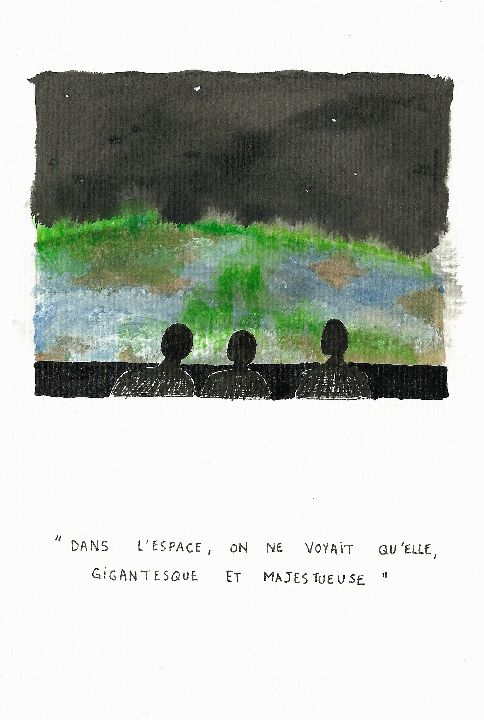 " DANS L'ESPACE, ON NE VOYAIT QU'ELLE,
GIGANTESQUE ET MAJESTUEUSE "